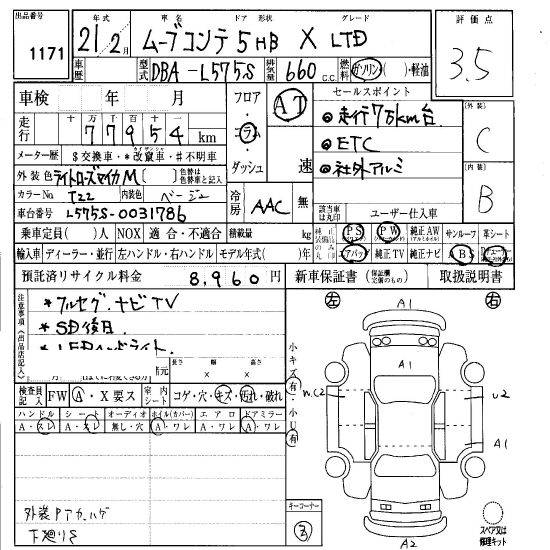 出品番号 年式 車名 ドア 形状 グレード 評価点
1171 21/2月 ムーブコンテ 5HB X LTD 3.5
車歴 型式 DBA-L575S 排気量 660 c.c. 燃料 ガソリン・( )・軽油
車検 年 月 フロア・コラム・ダッシュ AT 速 セールスポイント
走行 十 万 千 百 十 一 77954 km
◎走行7万km台
◎ETC
◎社外アルミ
外装 C
内装 B
メーター歴 $交換車・*改竄車・#不明車
外装色 ライトローズマイカM ( ) 色替は色替車と記入
カラーNo. T22 内装色 ベージュ
車台番号 L575S-0031786
冷房 AAC 無
該当車は丸印 ユーザー仕入車
乗車定員( )人 NOX 適合・不適合 積載量 kg
純正装備品のみ丸印 PS PW 純正AW サンルーフ 革シート
輸入車 ディーラー・並行 左ハンドル・右ハンドル モデル年式( )年
エアバッグ 純正TV 純正ナビ ABS
預託済リサイクル料金 8,960円 新車保証書 取扱説明書
注意事項(出品店記入)
*フルセグ.ナビTV
*SD後日.
長さ 幅 高さ
左 右
小キズ有・小U有
A1
A1
W.C2
U2
A1
A2
検査員記入 FW A・X要ス 室内シート コゲ・穴・キズ・汚れ・破れ
ハンドル シート オーディオ ホイル(カバー) エアロ ドアミラー
A・スレ A・スレ 無し・穴 A・ワレ A・ワレ A・ワレ
外装Pアカハゲ
下廻りS
キーコーナー
3
スペア又は修理キット